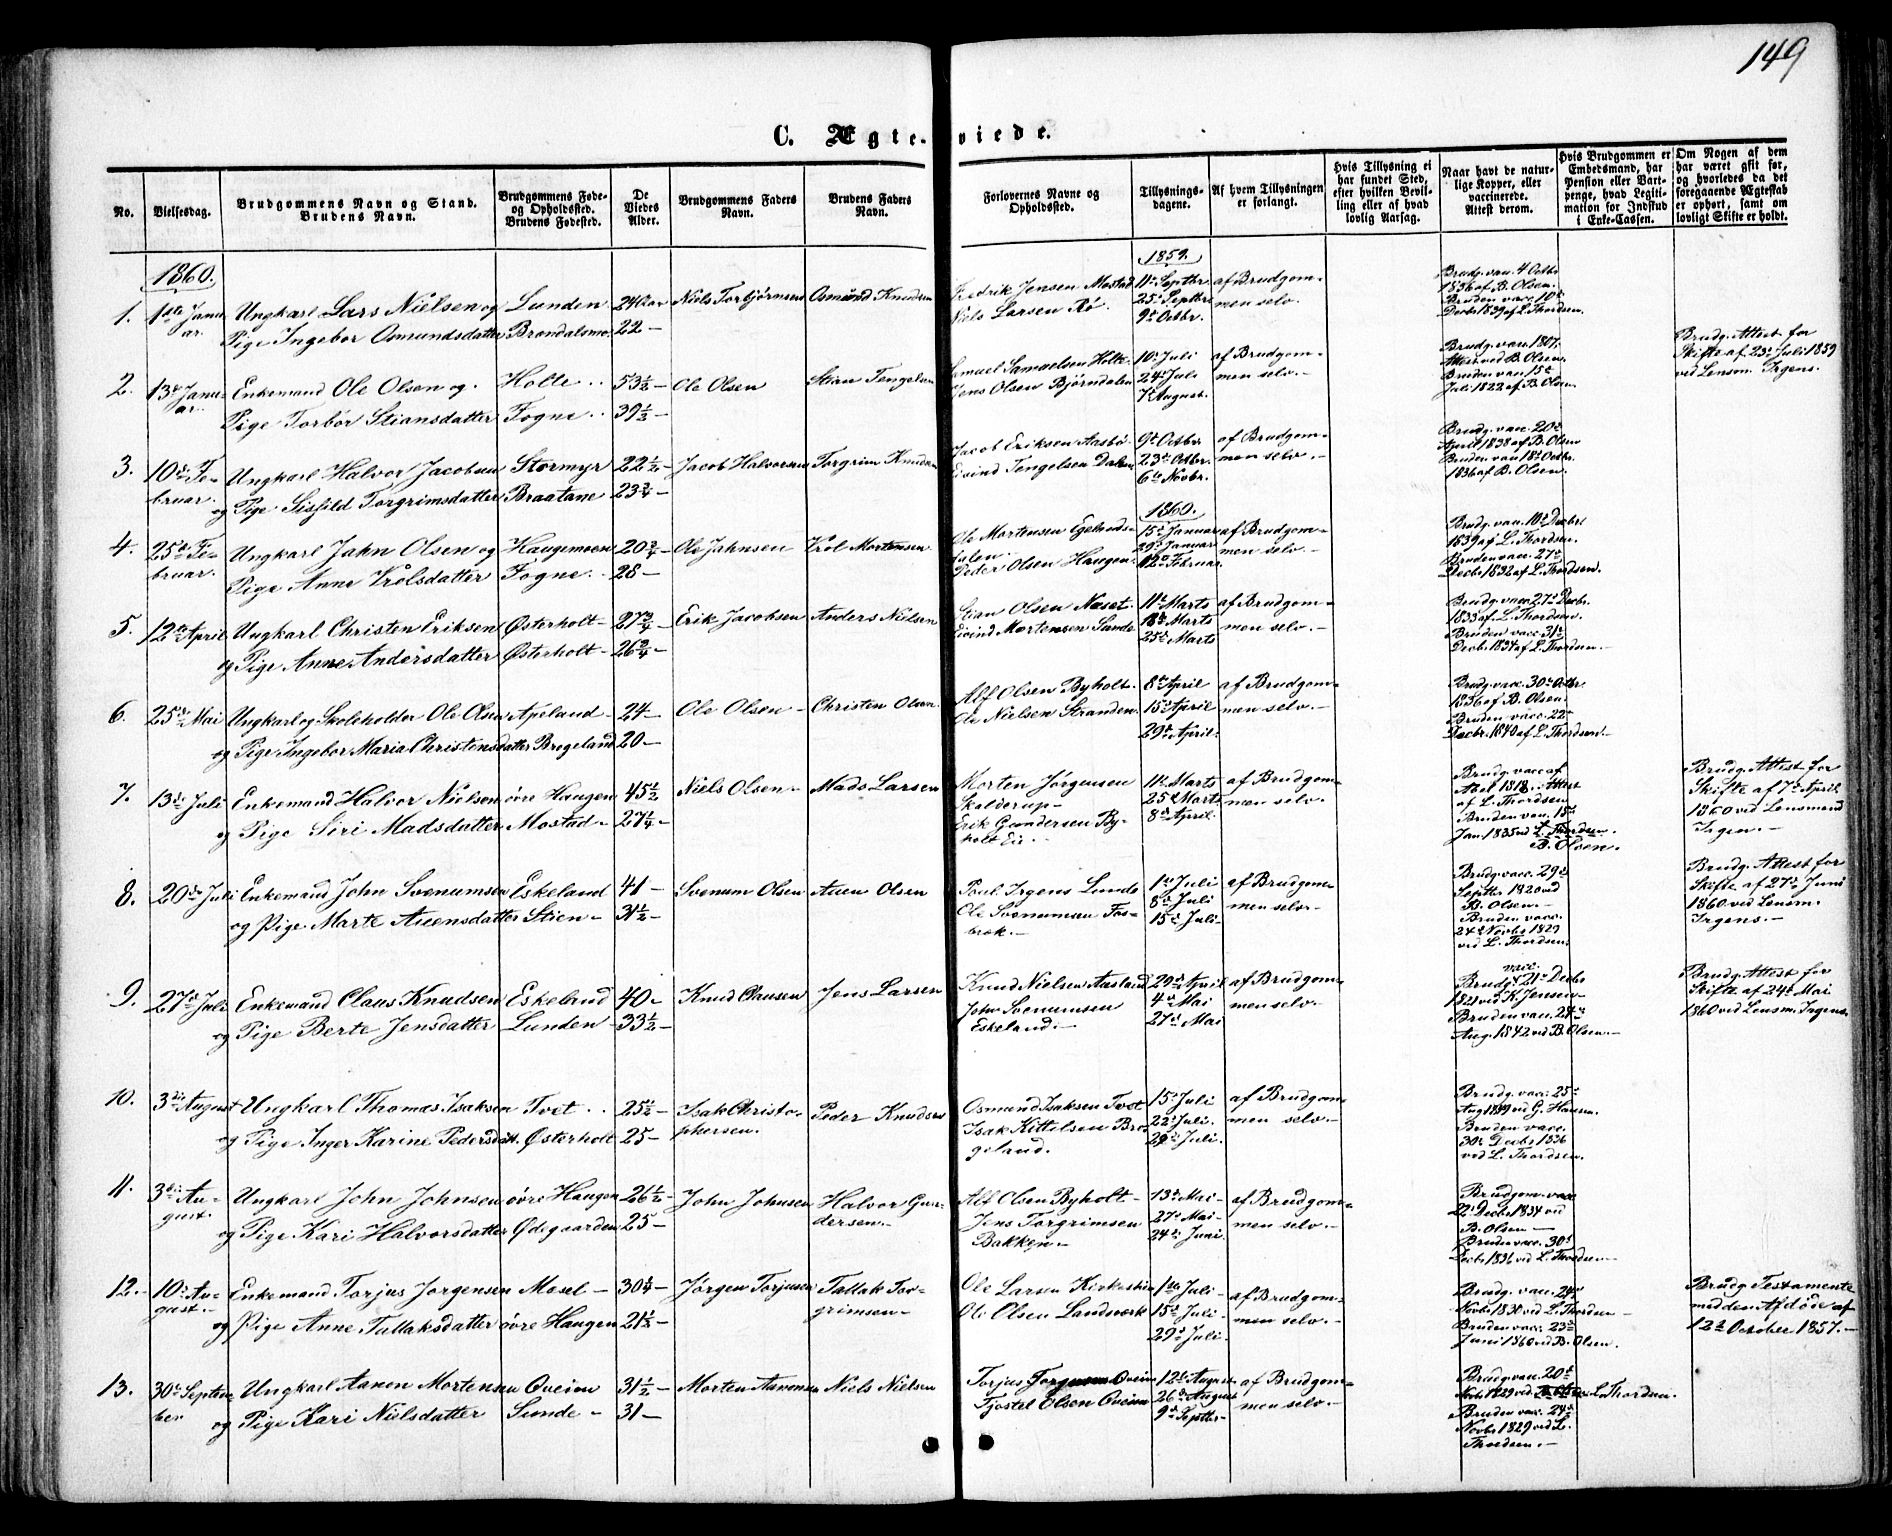 149
C. Ægteviede.
No.
Vielsesdag.
Brudgommens Navn og Stand.
Brudens Navn.
Brudgommens Føde-
og Opholdssted.
Brudens Fødested.
De
Viedes
Alder.
Brudgommens Faders
Navn.
Brudens Faders
Navn.
Forlovernes Navne og
Opholdssted.
Tillysnings-
dagene.
Af hvem Tillysningen
er forlangt.
Hvis Tillysning ei
har fundet Sted,
efter hvilken Bevil-
ling eller af hvad
lovlig Aarsag.
Naar havt de natur-
lige Kopper, eller
vaccinerede.
Attest derom.
Hvis Brudgommen er
Embedsmand, har
Pension eller Vart-
penge, hvad Legiti-
mation for Indskud
i Enke-Cassen.
Om Nogen af dem
har været gift før,
og hvorledes da det
foregaaende Ægteskab
er ophørt, samt om
lovligt Skifte er holdt.
1860.
1859.
1. 1ste Janu- Ungkarl Lars Nielsen og Lunden 24 Aar Niels Torbjørnsen Osmund Knudsen Fredrik Jensen Mostad 11te Septbr. af Brudgom-
ar. Pige Ingebor Osmundsdatter Brøndalsmo 22 — Niels Larsen Rø. 25de Septbr. men selv.
9de Octbr.
Brudg. vac. 4 Octbr
1836 af B. Olsen.
Bruden vacc. 10de
Decbr 1839 af L. Thordsen.
2. 13de Janu- Enkemand Ole Olsen og Holte 53½ — Ole Olsen Stian Tengelsen Samuel Samuelsen Holte 10de Juli af Brudgom-
ar. Pige Torbør Stiansdatter Fogne 39½ — Jens Olsen Bjørndalen 24de Juli men selv.
7de August.
Brudg. vac. 1807.
Attest ved B. Olsen.
Bruden vac. 15de
Juli 1822 af B. Olsen
Brudg. Attest for
Skifte af 23de Juli 1859
ved Lensm. Irgens.
3. 10de Fe- Ungkarl Halvor Jacobsen Stormyr 22½ — Jacob Halvorsen Torgrim Knudsen Jacob Eriksen Aasbø 9de Octbr af Brudgom-
bruar. og Pige Sisfild Torgrimsdatter Braatane 23¾ — Eivind Tengelsen Dalen 23de Octbr. men selv.
6te Novbr.
Brudg. vacc. 20de
April 1838 af B. Olsen
Bruden vac. 18de Octbr.
1836 af B. Olsen.
1860.
4. 25de Fe- Ungkarl Jahn Olsen og Haugemoen 20¾ — Ole Jahnsen Vrol Mortensen Ole Mortensen Egelands- 15de Januar af Brudgom-
bruar. Pige Anne Vrolsdatter Fogne 28 — dalen. 29de Januar men selv.
Peder Olsen Haugen 12te Februar
Brudg. vac. 10de Decbr
1839 af L. Thordsen.
Bruden vac. 27de
Decbr 1832 af L. Thordsen.
5. 12te April Ungkarl Christen Eriksen Østerholt 27¾ — Erik Jacobsen Anders Nielsen Stian Olsen Næset 11te Marts af Brudgom-
og Pige Anne Andersdatter Østerholt 26¾ — Eivind Mortensen Sunde 18de Marts men selv.
25de Marts
Brudg. vacc. 27de Decbr.
1833 af L. Thordsen.
Bruden vacc. 31te
Decbr 1834 af L. Thordsen.
6. 25de Mai Ungkarl og Skoleholder Ole Olsen Apeland 24 — Ole Olsen Christen Olsen Alf Olsen Byholt 8de April af Brudgom-
og Pige Ingebor Maria Christensdatter Brøgeland 20 — Ole Nielsen Stranden 15de April men selv.
29de April.
Brudg. vacc. 30te Octbr.
1836 af B. Olsen.
Bruden vacc. 22de
Decbr. 1840 af L. Thordsen.
7. 13de Juli Enkemand Halvor Nielsen øvre Haugen 45½ Niels Olsen Mads Larsen Morten Jørgensen 11te Marts af Brudgom-
og Pige Siri Madsdatter Mostad 27¼ — Skolderup 25de Marts men selv.
Erik Gundersen By- 8de April.
holt Eie.
Brudg. vacc af
April 1818. Attest
af L. Thordsen
Bruden vac. 15de
Jan. 1835 ved L. Thordsen.
B. Olsen.
Brudg. Attest for
Skifte af 7de April
1860 ved Lensmand
Irgen.
8. 20de Juli Enkemand John Svenumsen Eskeland 41 — Svenum Olsen Auen Olsen Poul Irgens Lunde 1ste Juli af Brudgom-
og Pige Marte Auensdatter Stien 31½ — Ole Svenumsen Fos- 8de Juli men selv.
brok. 15de Juli
Brudg. vacc. 29de
Septbr 1820 ved
B. Olsen.
Bruden vacc.
24de Novbr 1829
ved L. Thordsen.
Brudg. Attest for
Skifte af 27de Juni
1860 ved Lensm.
Irgens.
9. 27de Juli Enkemand Claus Knudsen Eskeland 40 — Knud Clausen Jens Larsen Knud Nielsen Aasland 29de April af Brudgom-
og Pige Berte Jensdatter Lunden 33½ — John Svenumsen 4de Mai men selv.
Eskeland. 27de Mai
Brudg. vacc. 21de Decbr
1821 ved K. Jensen
Bruden vac. 24de
Aug. 1842 ved B. Olsen.
Brudg. Attest for
Skifte af 24de Mai
1860 ved Lensm. Irgens.
10. 3die August Ungkarl Thomas Isaksen Tvet 25½ — Isak Christo- Peder Knudsen Osmund Isaksen Tvet 15de Juli af Brudgom-
og Pige Inger Karine Pedersdatt. Østerholt 25 — phersen. Isak Kittelsen Brø- 22de Juli. men selv.
geland. 29de Juli.
Brudg. vacc. 25de
Aug 1839 ved G. Hansen.
Bruden vacc.
30te Decbr 1836
ved L. Thordsen.
11. 3die Au- Ungkarl John Johnsen øvre Haugen 26½ — John Johnsen Halvor Gun- Alf Olsen Byholt 13de Mai af Brudgom-
gust. og Pige Kari Halvorsdatter Ødegaarden 25 — dersen. Jens Torgrimsen 27de Mai men selv.
Bakken. 24de Juni
Brudgom. vacc
22de Decbr 1834 ved
B. Olsen
Bruden vacc. 30te
Decbr 1836 ved L. Thordsen
12. 10de Au- Enkemand Torjus Jørgensen Mosel 30¼ — Jørgen Torjusen Tallak Tor- Ole Larsen Kirkestue 1ste Juli af Brudgom-
gust. og Pige Anne Tallaksdatter øvre Haugen 21½ — grimsen Ole Olsen Landsverk 15de Juli men selv.
29de Juli
Brudg. vacc. 24de
Novbr 1830 ved L. Thordsen
Bruden vacc. 23de
Juni 1860 ved B. Olsen.
Brudg Testamente
med den Afdøde af
12te October 1857.
13. 30te Septem- Ungkarl Aanon Mortensen Qveim 31½ — Morten Aanonsen Niels Nielsen Torjus Torgusen Qveim 12te August af Brudgom-
ber og Pige Kari Nielsdatter Sunde 31 — Fjøstel Olsen Qveim 26de August men selv.
9de Septbr
Brudg vac. 20de
Nov. 1829 ved L. Thordsen.
Bruden vacc. 24de
Novbr 1829 ved L.
Thordsen.